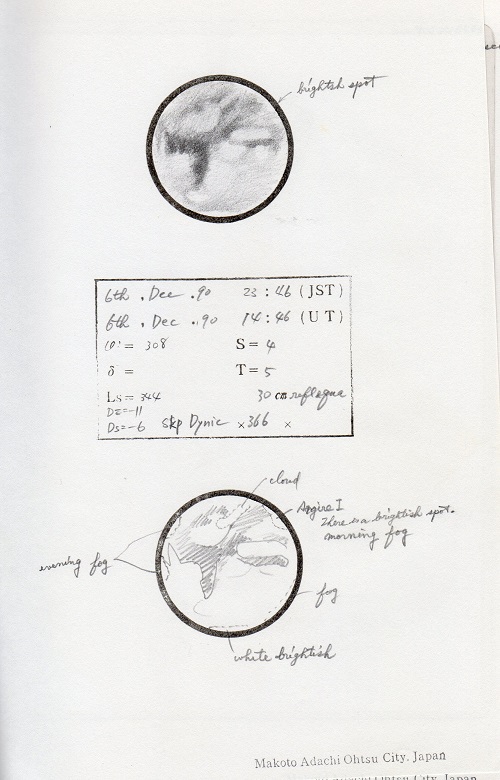 brightish spot
6th . Dec . 90 23 : 46 (JST)
6th . Dec . 90 14 : 46 (U T)
= 308 S = 4
δ = T = 5
Ls = 344 30 cm
DE=-11
Ds=-6 Skp Dynic ×366 ×
cloud
There is a brightish spot.
morning fog
evening fog
fog
white brightish
Makoto Adachi Ohtsu City. Japan